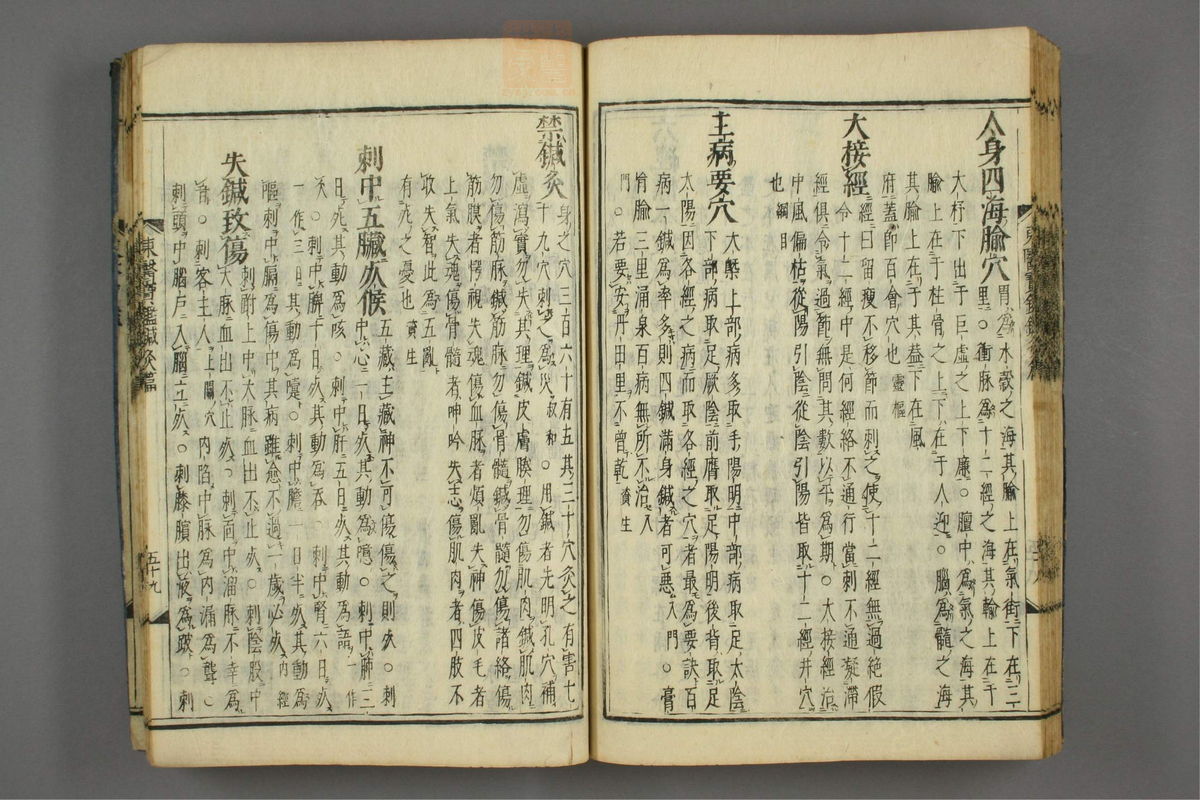 人身四海腧穴 胃爲水穀之海其腧上在氣街下在三
里○衝脉爲十二經之海其輸上在于
大杼下出于巨虛之上下廉○膻中爲氣之海其
腧上在于柱骨之上下在于人迎○腦爲髓之海
其腧上在于其蓋下在風
府蓋卽百會穴也 靈樞
大接經 經曰留瘦不移節而刺之使十二經無過絶假
令十二經中是何經絡不通行當刺不通凝滯
經俱令氣過節無問其數以平爲期○大接經治
中風偏枯從陽引陰從陰引陽皆取十二經井穴
也 綱目
主病要穴 大槩上部病多取手陽明中部病取足太陰
下部病取足厥陰前膺取足陽明後背取足
太陽因各經之病而取各經之穴者最爲要訣百
病一鍼爲率多則四鍼滿身鍼者可惡 入門○膏
肓腧三里涌泉百病無所不治 入
門○若要安丹田里不曾乾 資生
禁鍼灸 身之穴三百六十有五其三十穴灸之有害七
十九穴刺之爲災 叔和○用鍼者先明孔穴補
虛瀉實勿失其理鍼皮膚腠理勿傷肌肉鍼肌肉
勿傷筋脉鍼筋脉勿傷骨髓鍼骨髓勿傷諸絡傷
筋膜者愕視失魂傷血脉者煩亂失神傷皮毛者
上氣失魂傷骨髓者呻吟失志傷肌肉者四肢不
收失智此爲五亂
有死之憂也 資生
刺中五臟死候 五藏主藏神不可傷傷之則死○刺
中心一日死其動爲噫○刺中肺三
日死其動爲咳○刺中肝五日死其動爲語 一作
欠○刺中脾十日死其動爲呑○刺中腎六日死
一作三日其動爲嚔○刺中膽一日半死其動爲
嘔刺中膈爲傷中其病雖愈不過一歲必死 内經
失鍼致傷 刺跗上中大脉血出不止死○刺陰股中
大脉血出不止死○刺面中溜脉不幸爲
盲○刺客主人 上關穴 内陷中脉爲内漏爲聾○
刺頭中腦户入腦立死○刺膝臏出液爲跛○刺
東醫寶鑑鍼灸篇
五十九